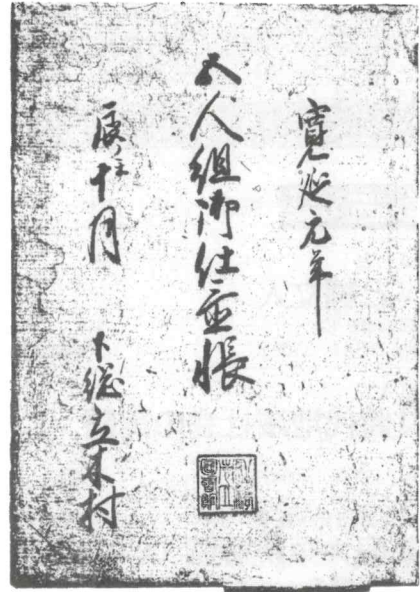 寛延元年
五人組御仕置帳
辰十月
下総立木村